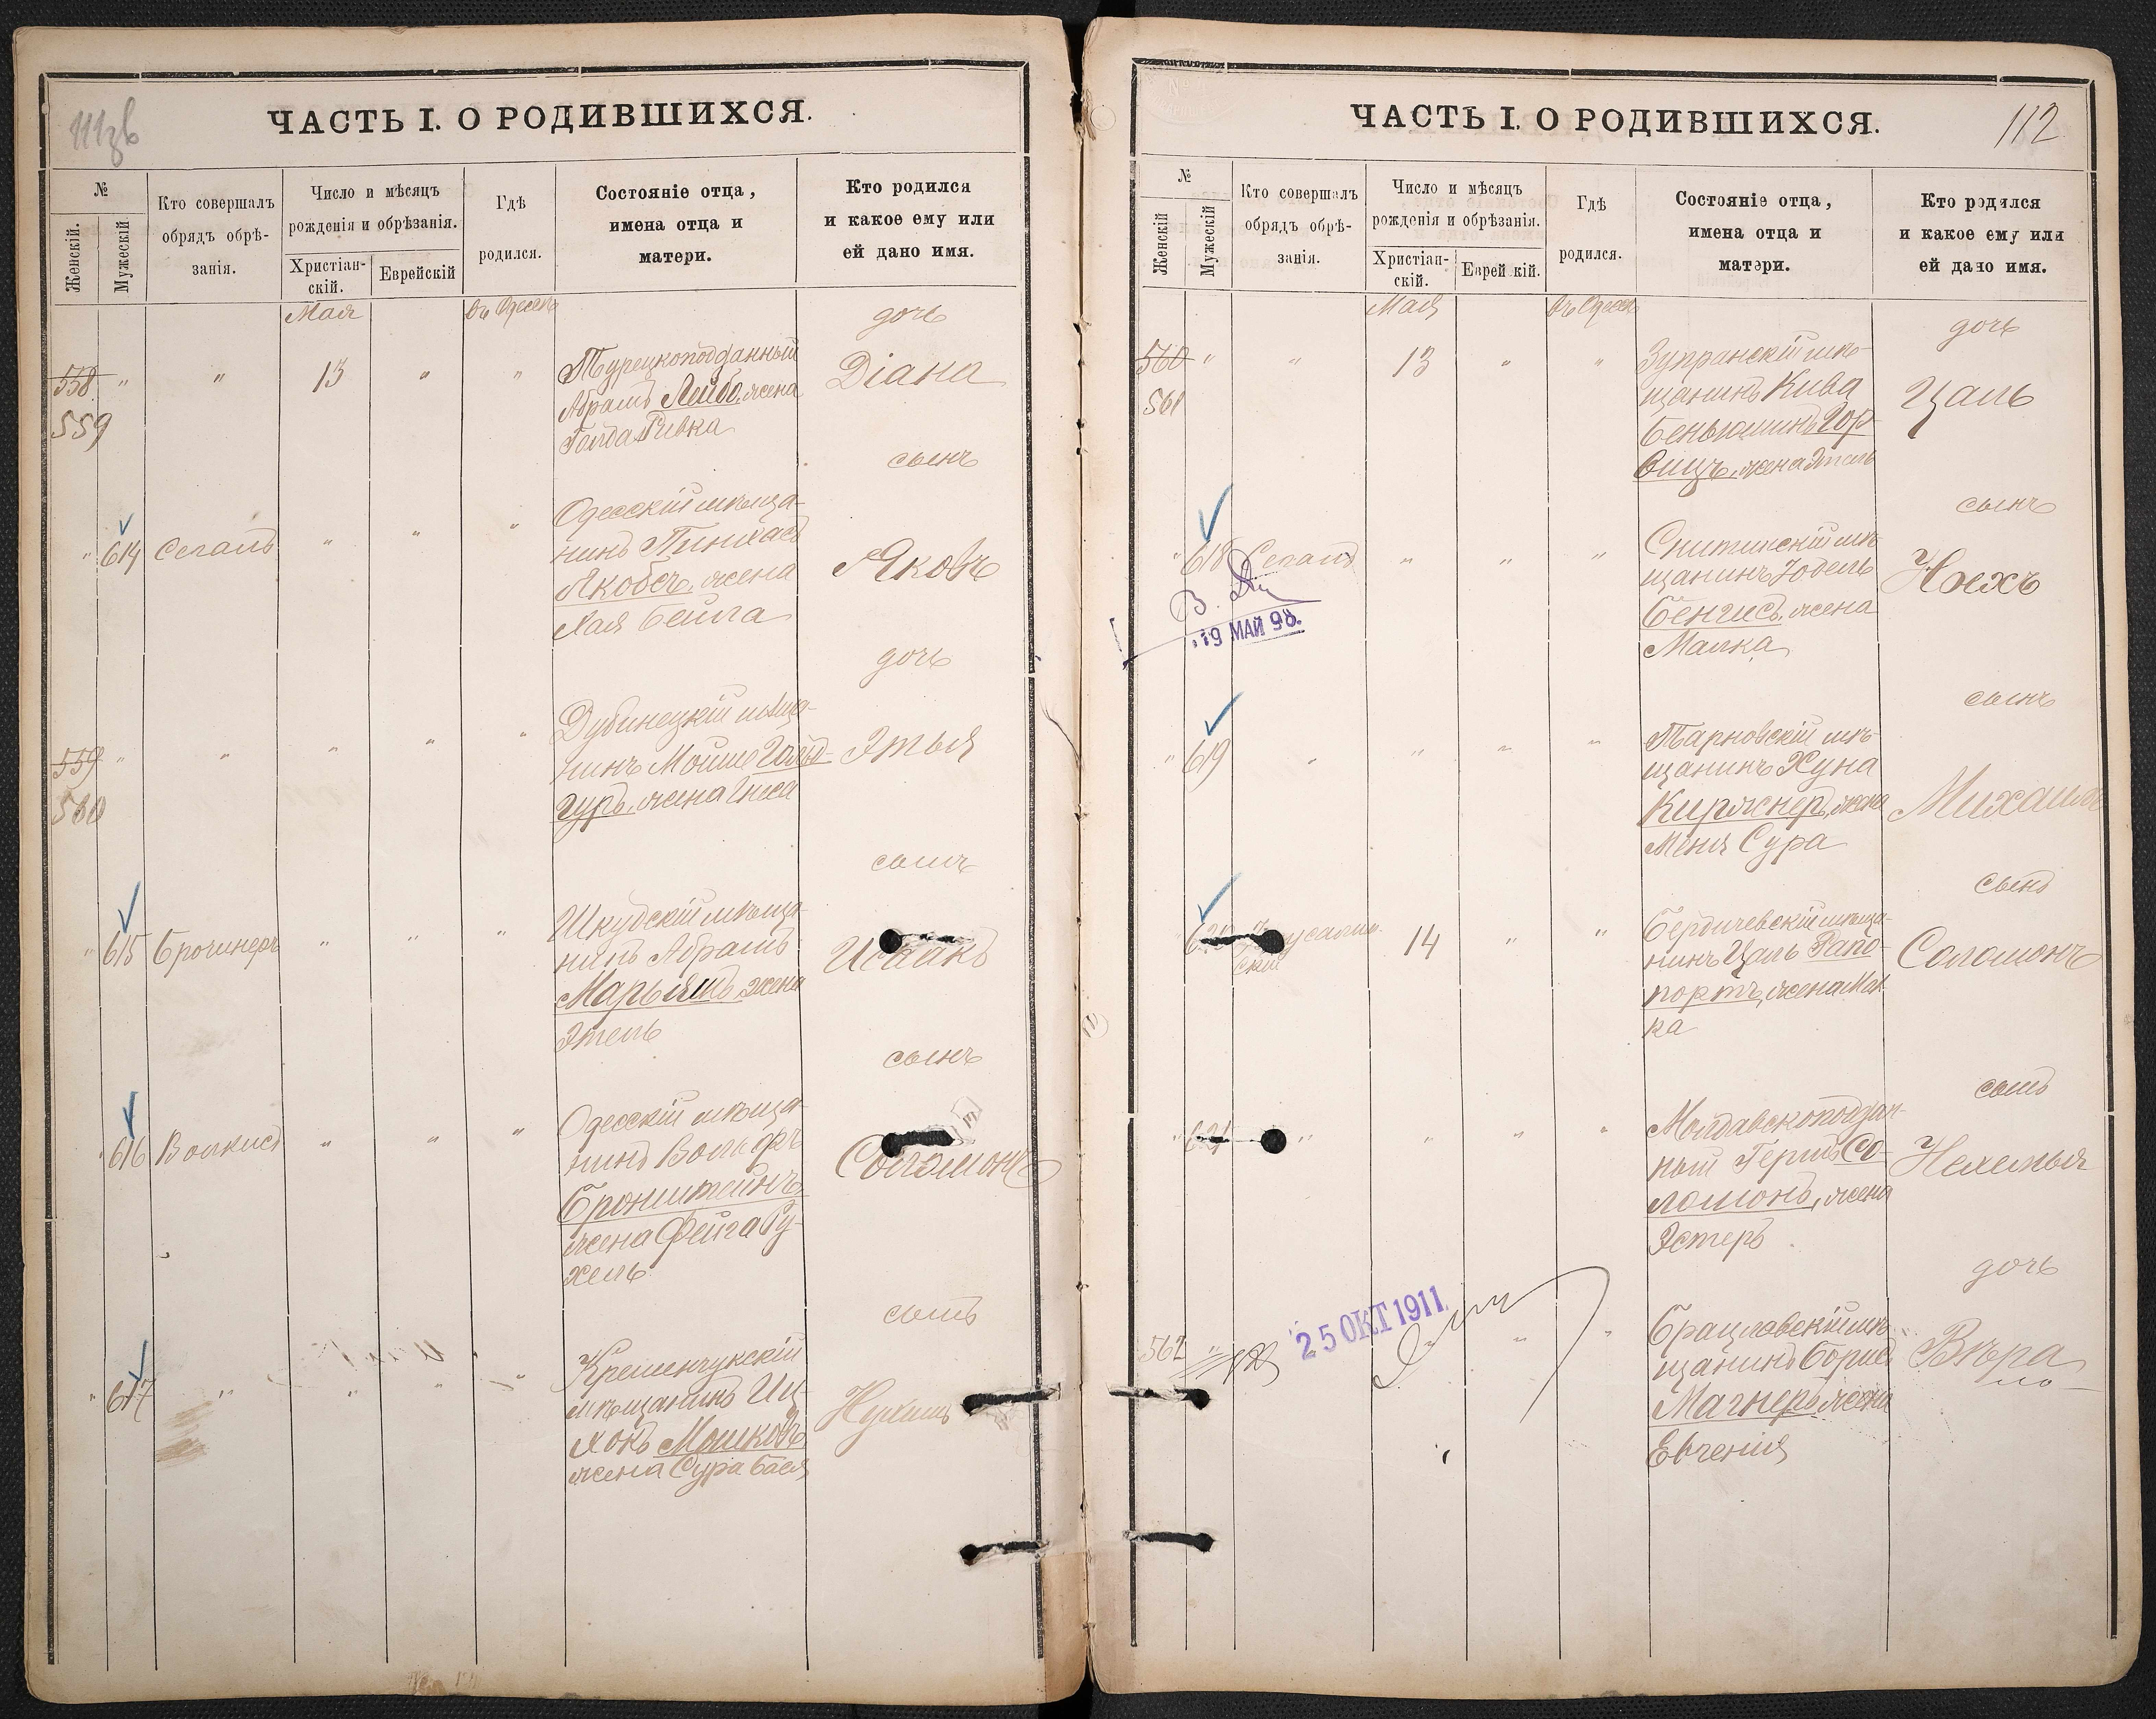 111 зв
ЧАСТЬ I. О РОДИВШИХСЯ.
№
Женскій.
Мужескій
Кто совершалъ
обрядъ обрѣ-
занія.
Число и мѣсяцъ
рожденія и обрѣзанія.
Христіан-
скій.
Еврейскій
Гдѣ
родился.
Состояніе отца,
имена отца и
матери.
Кто родился
и какое ему или
ей дано имя.
Мая
въ Одессѣ
дочь
558 " " 13 " " Турецкоподданный
Абрамъ Лейбо, жена
Голда Ривка
Діана
559
сынъ
" 614 Сегалъ " " " Одесскій мѣща-
нинъ Пинхасъ
Якобсъ, жена
Хая Бейла
Яковъ
дочь
559 " " " " " Дубинецкій мѣща-
нинъ Мойше Гольд-
гуръ, жена Гнеса
Этья
560
сынъ
" 615 Брочинеръ " " " Шкудскій мѣща-
нинъ Абрамъ
Марьямъ, жена
Этель
Исаакъ
сынъ
" 616 Волкисъ " " " Одесскій мѣща-
нинъ Вольфъ
Бронштейнъ,
жена Фейга Ру-
хель
Соломонъ
сынъ
" 617 " " " " Кременчукскій
мѣщанинъ Иц-
хокъ Мошковъ,
жена Сура Бася
Нухимъ
ЧАСТЬ I. О РОДИВШИХСЯ.
112
№
Женскій
Мужескій
Кто совершалъ
обрядъ обрѣ-
занія.
Число и мѣсяцъ
рожденія и обрѣзанія.
Христіан-
скій.
Еврей кій.
Гдѣ
родился.
Состояніе отца,
имена отца и
матери.
Кто родился
и какое ему или
ей дано имя.
Мая
въ Одессѣ
дочь
560 " " 13 " " Зупранскій мѣ-
щанинъ Кива
Беньяминъ Гор-
вицъ, жена Этель
Цаль
561
сынъ
" 618 Сегалъ " " " Снитинскій мѣ-
щанинъ Іовель
Бенгисъ, жена
Малка
Ноехъ
19 МАЙ 98.
сынъ
" 619 " " " " Тарновскій мѣ-
щанинъ Хуна
Киржнеръ, жена
Меня Сура
Михаилъ
сынъ
" 620
скій
14 " " Бердичевскій мѣща-
нинъ Цаль Рапо-
портъ, жена Мал
ка
Соломонъ
сынъ
" 621 " " " " Молдавскоподдан-
ный Гершъ Со-
ломонъ, жена
Эстеръ
Нехемья
дочь
562 " " " Брацлавскій мѣ-
щанинъ Борисъ
Магнеръ, жена
Евгенія
Вѣра
25 ОКТ 1911